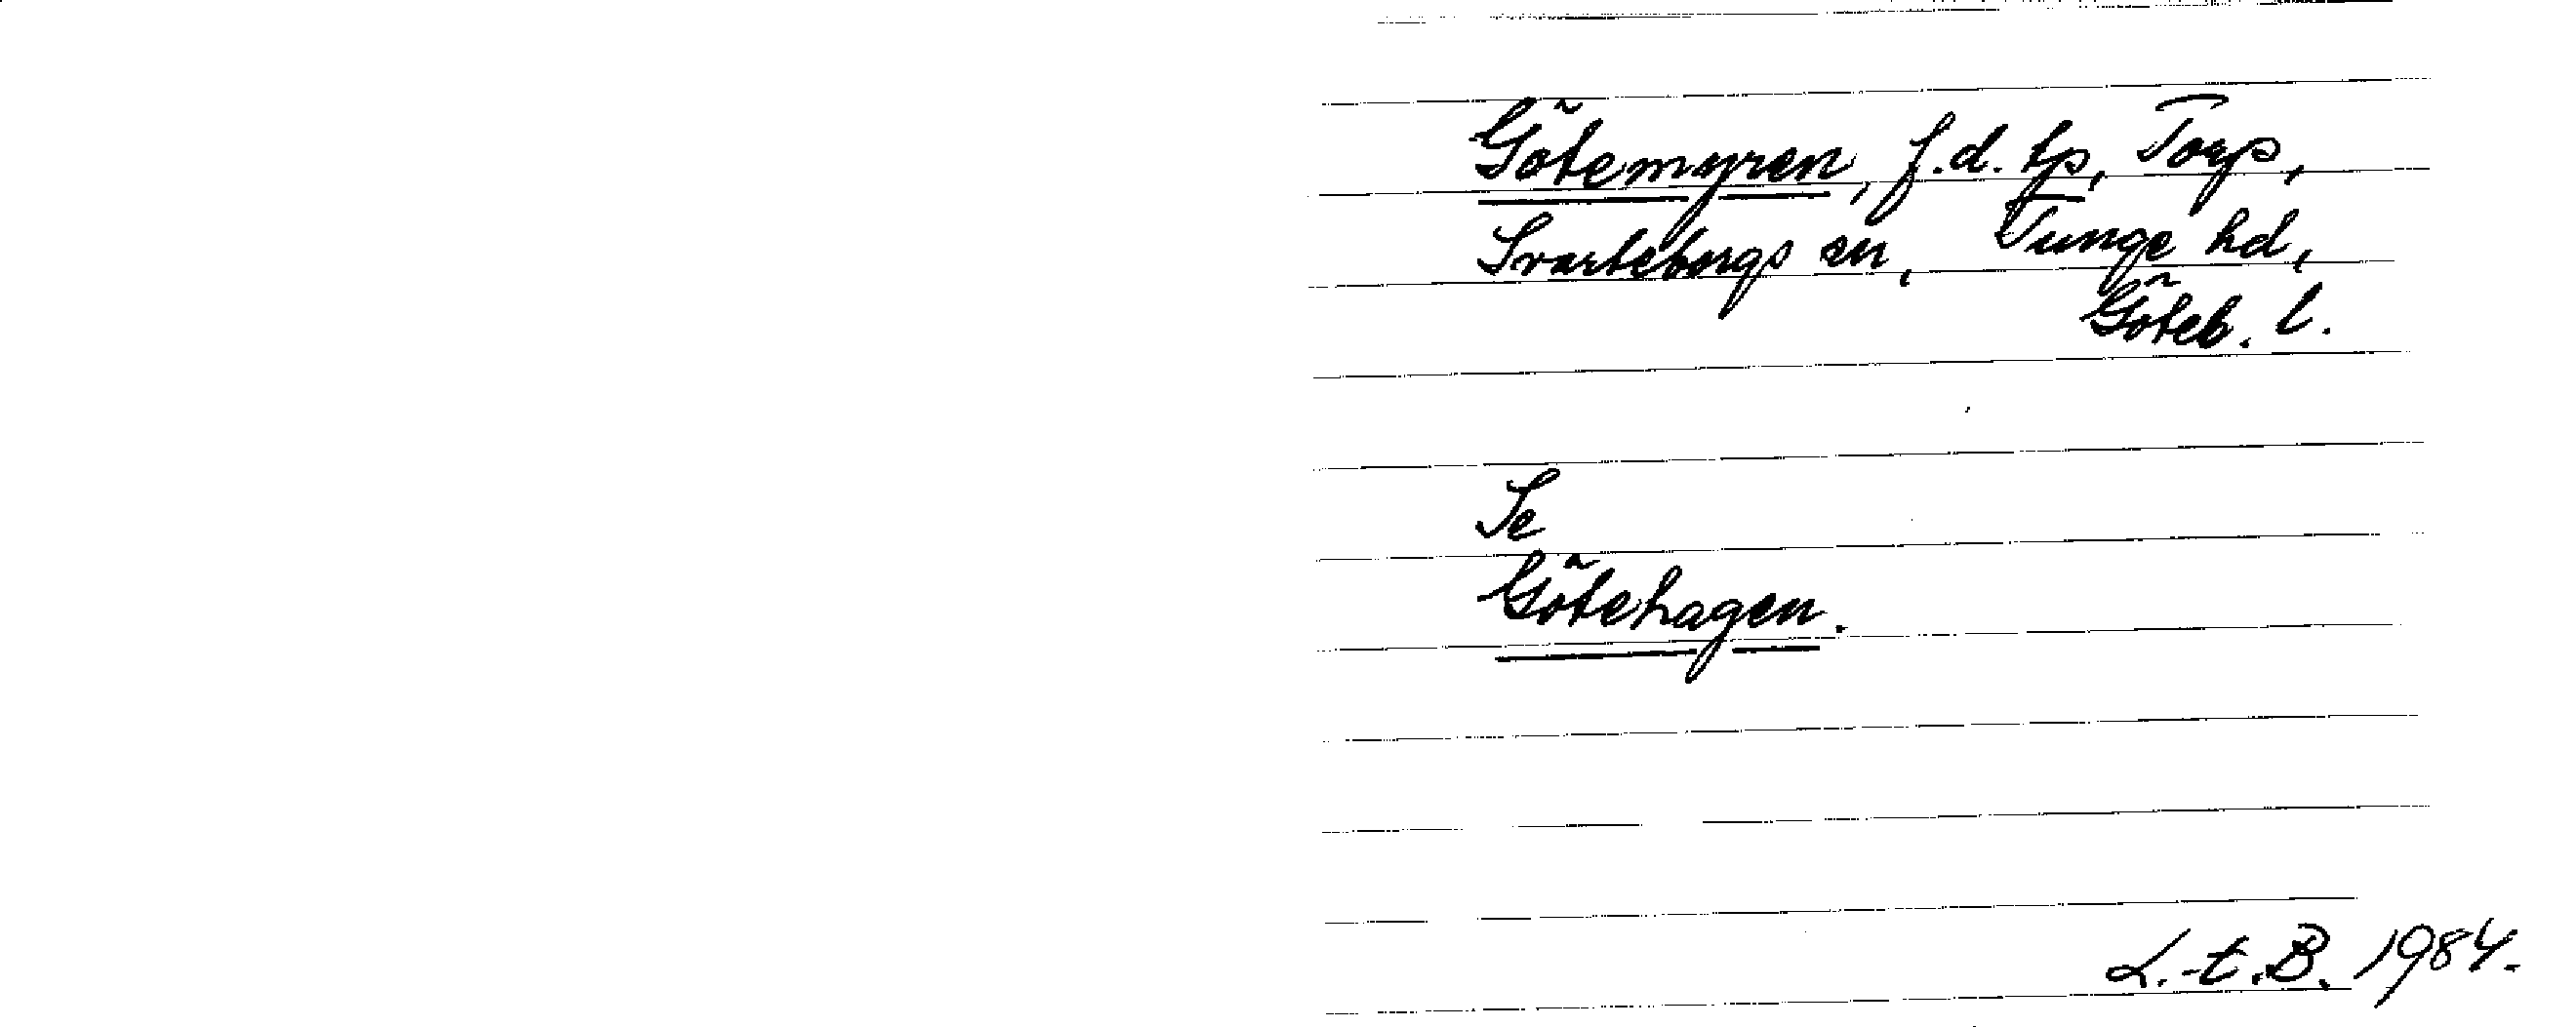 Götemyren, f.d. tp, Torp,
Svarteborgs sn, Tunge hd,
Göteb. l.
Se
Götehagen.
L.-t.B. 1984.